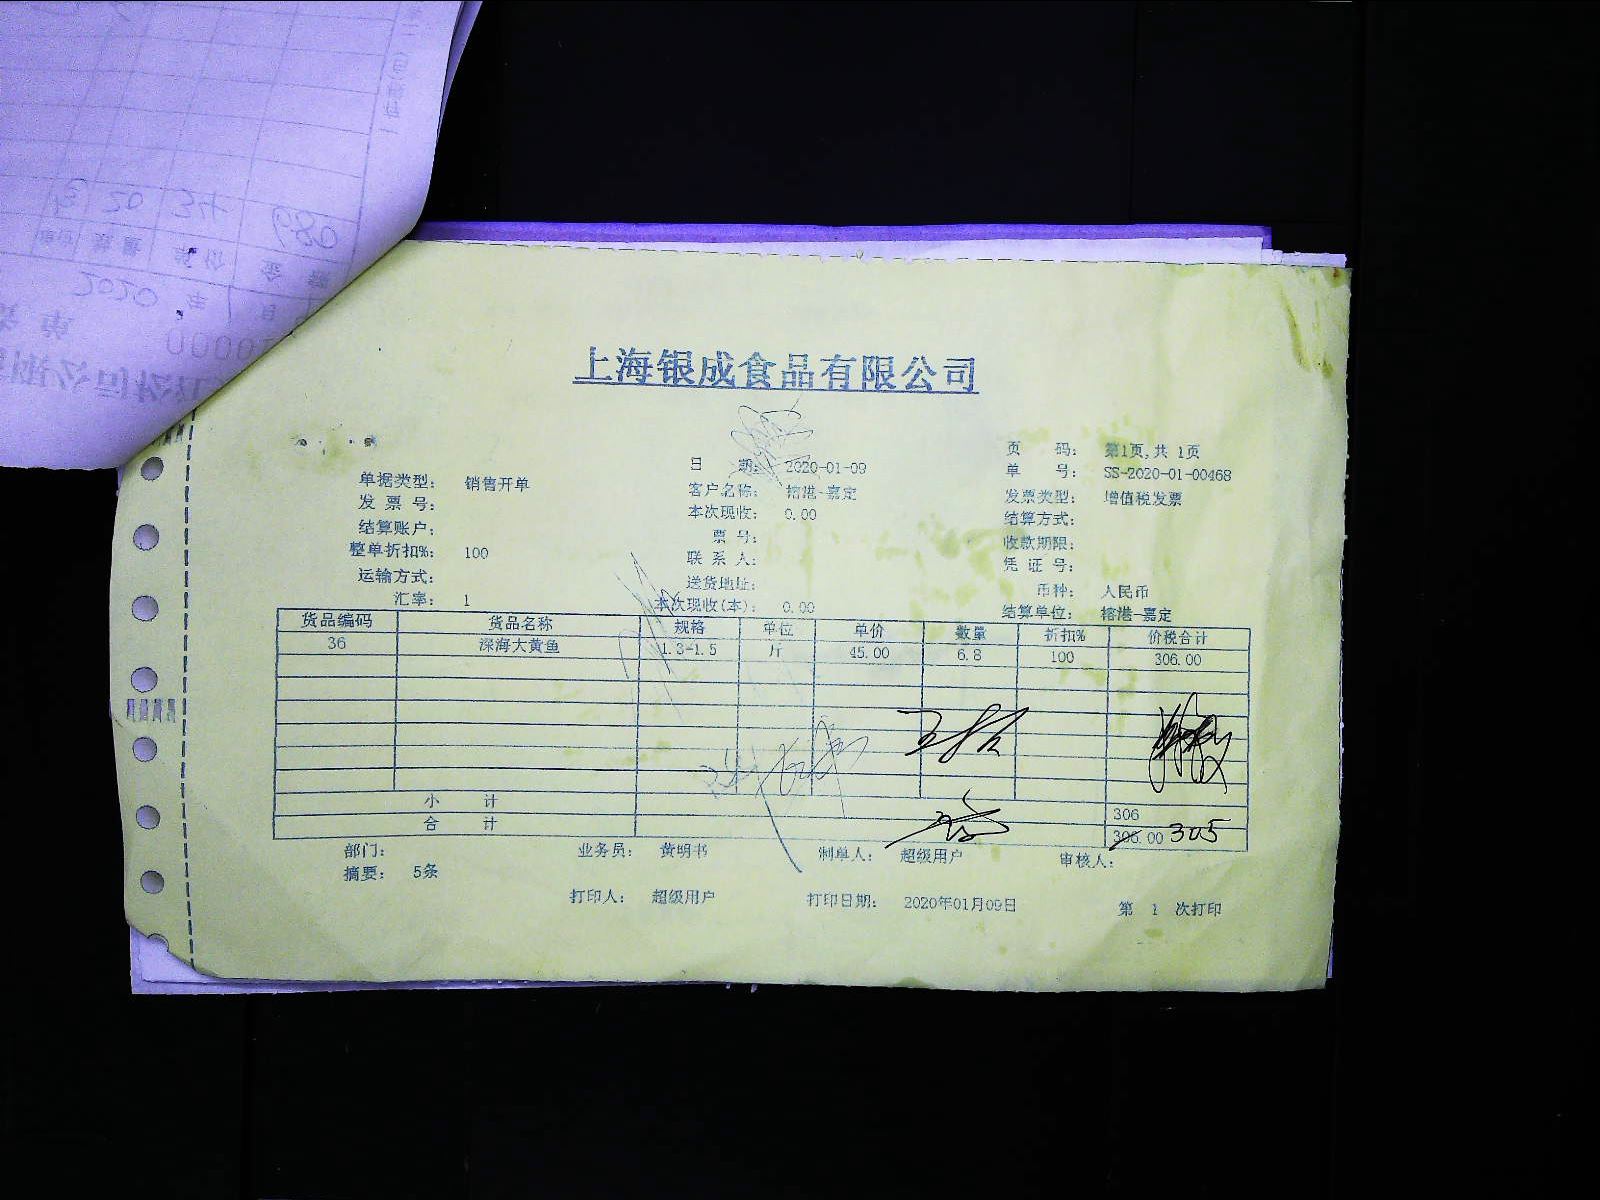 上海银成食品有限公司
页 码: 第1页,共 1页
日 期: 2020-01-09
单 号: SS-2020-01-00468
单据类型: 销售开单
客户名称: 榕港-嘉定
发票类型: 增值税发票
发 票 号:
本次现收: 0.00
结算方式:
结算账户:
票 号:
收款期限:
整单折扣%: 100
联 系 人:
凭 证 号:
运输方式:
送货地址:
币种: 人民币
汇率: 1
本次现收(本): 0.00
结算单位: 榕港-嘉定
货品编码 货品名称 规格 单位 单价 数量 折扣% 价税合计
36 深海大黄鱼 1.3-1.5 斤 45.00 6.8 100 306.00
小 计 306
合 计 306.00 305
部门: 业务员: 黄明书 制单人: 超级用户 审核人:
摘要: 5条
打印人: 超级用户 打印日期: 2020年01月09日 第 1 次打印